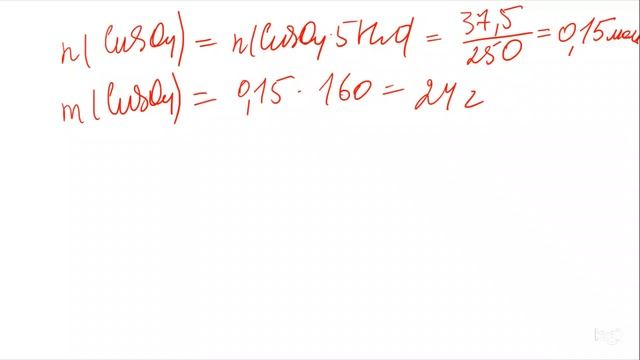 n(CuSO4) = n(CuSO4·5H2O) = 37,5/250 = 0,15 моль
m(CuSO4) = 0,15 · 160 = 24 г